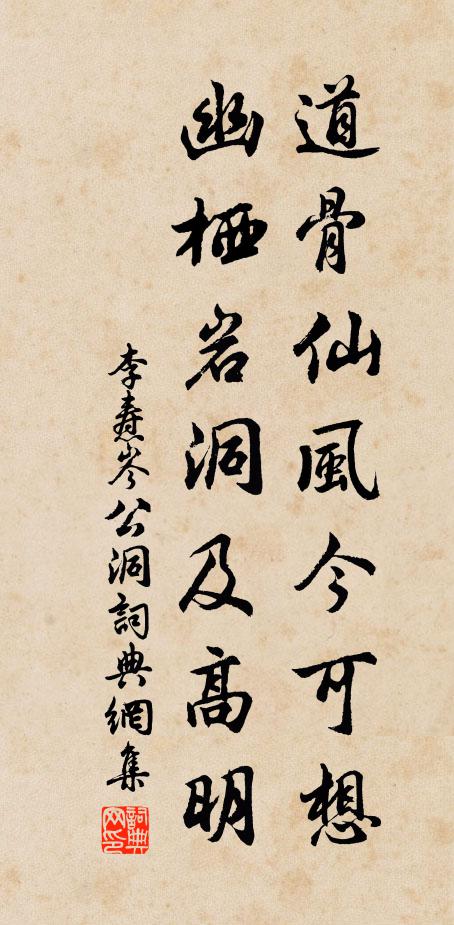 道骨仙風今可想
幽栖岩洞及高明
李燾岑公洞詞典網集
詞典网印